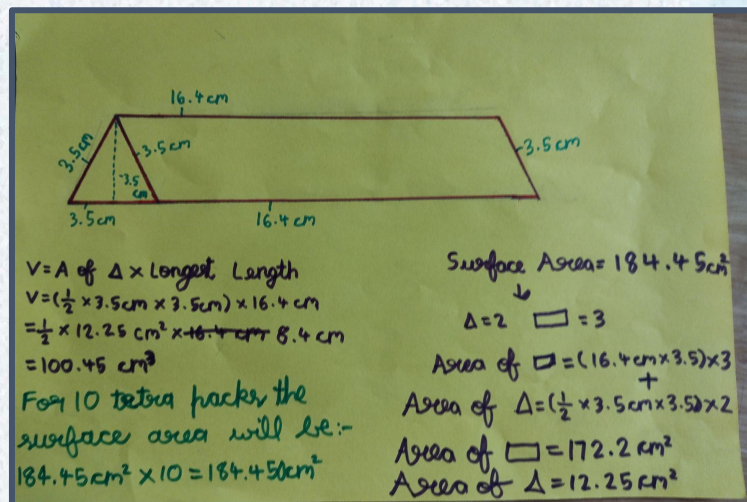 16.4 cm
3.5 cm
3.5 cm
3.5 cm
3.5 cm
3.5 cm
16.4 cm
V = A of Δ × Longest Length
V = (1/2 × 3.5cm × 3.5cm) × 16.4 cm
= 1/2 × 12.25 cm² × 16.4 cm 8.4 cm
= 100.45 cm³
For 10 tetra packs the
surface area will be:-
184.45cm² × 10 = 184.450cm²
Surface Area = 184.45cm²
↓
Δ = 2 ▭ = 3
Area of ▭ = (16.4cm × 3.5) × 3
+
Area of Δ = (1/2 × 3.5cm × 3.5) × 2
Area of ▭ = 172.2 cm²
Area of Δ = 12.25 cm²